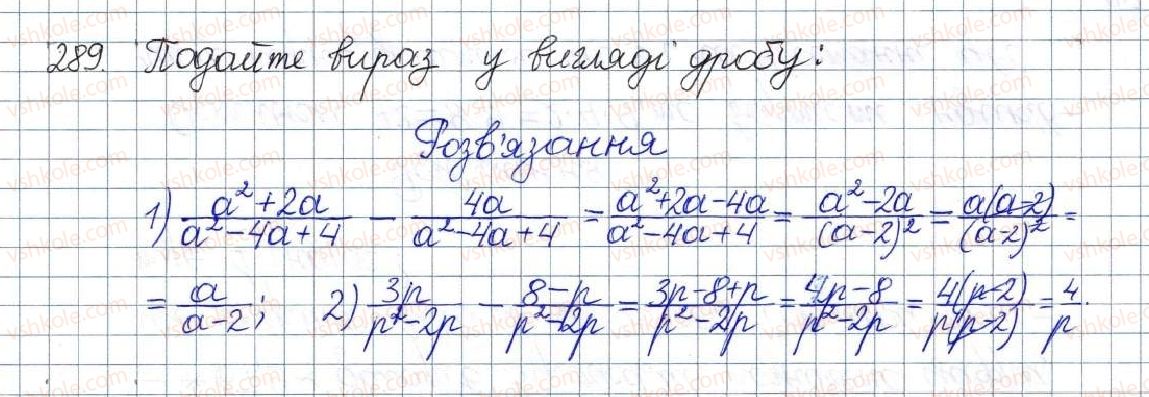 289. Подайте вираз у вигляді дробу:
Розв'язання
1) \frac{a^2+2a}{a^2-4a+4} - \frac{4a}{a^2-4a+4} = \frac{a^2+2a-4a}{a^2-4a+4} = \frac{a^2-2a}{(a-2)^2} = \frac{a(a-2)}{(a-2)^2} =
= \frac{a}{a-2}; 2) \frac{3p}{p^2-2p} - \frac{8-p}{p^2-2p} = \frac{3p-8+p}{p^2-2p} = \frac{4p-8}{p^2-2p} = \frac{4(p-2)}{p(p-2)} = \frac{4}{p}.